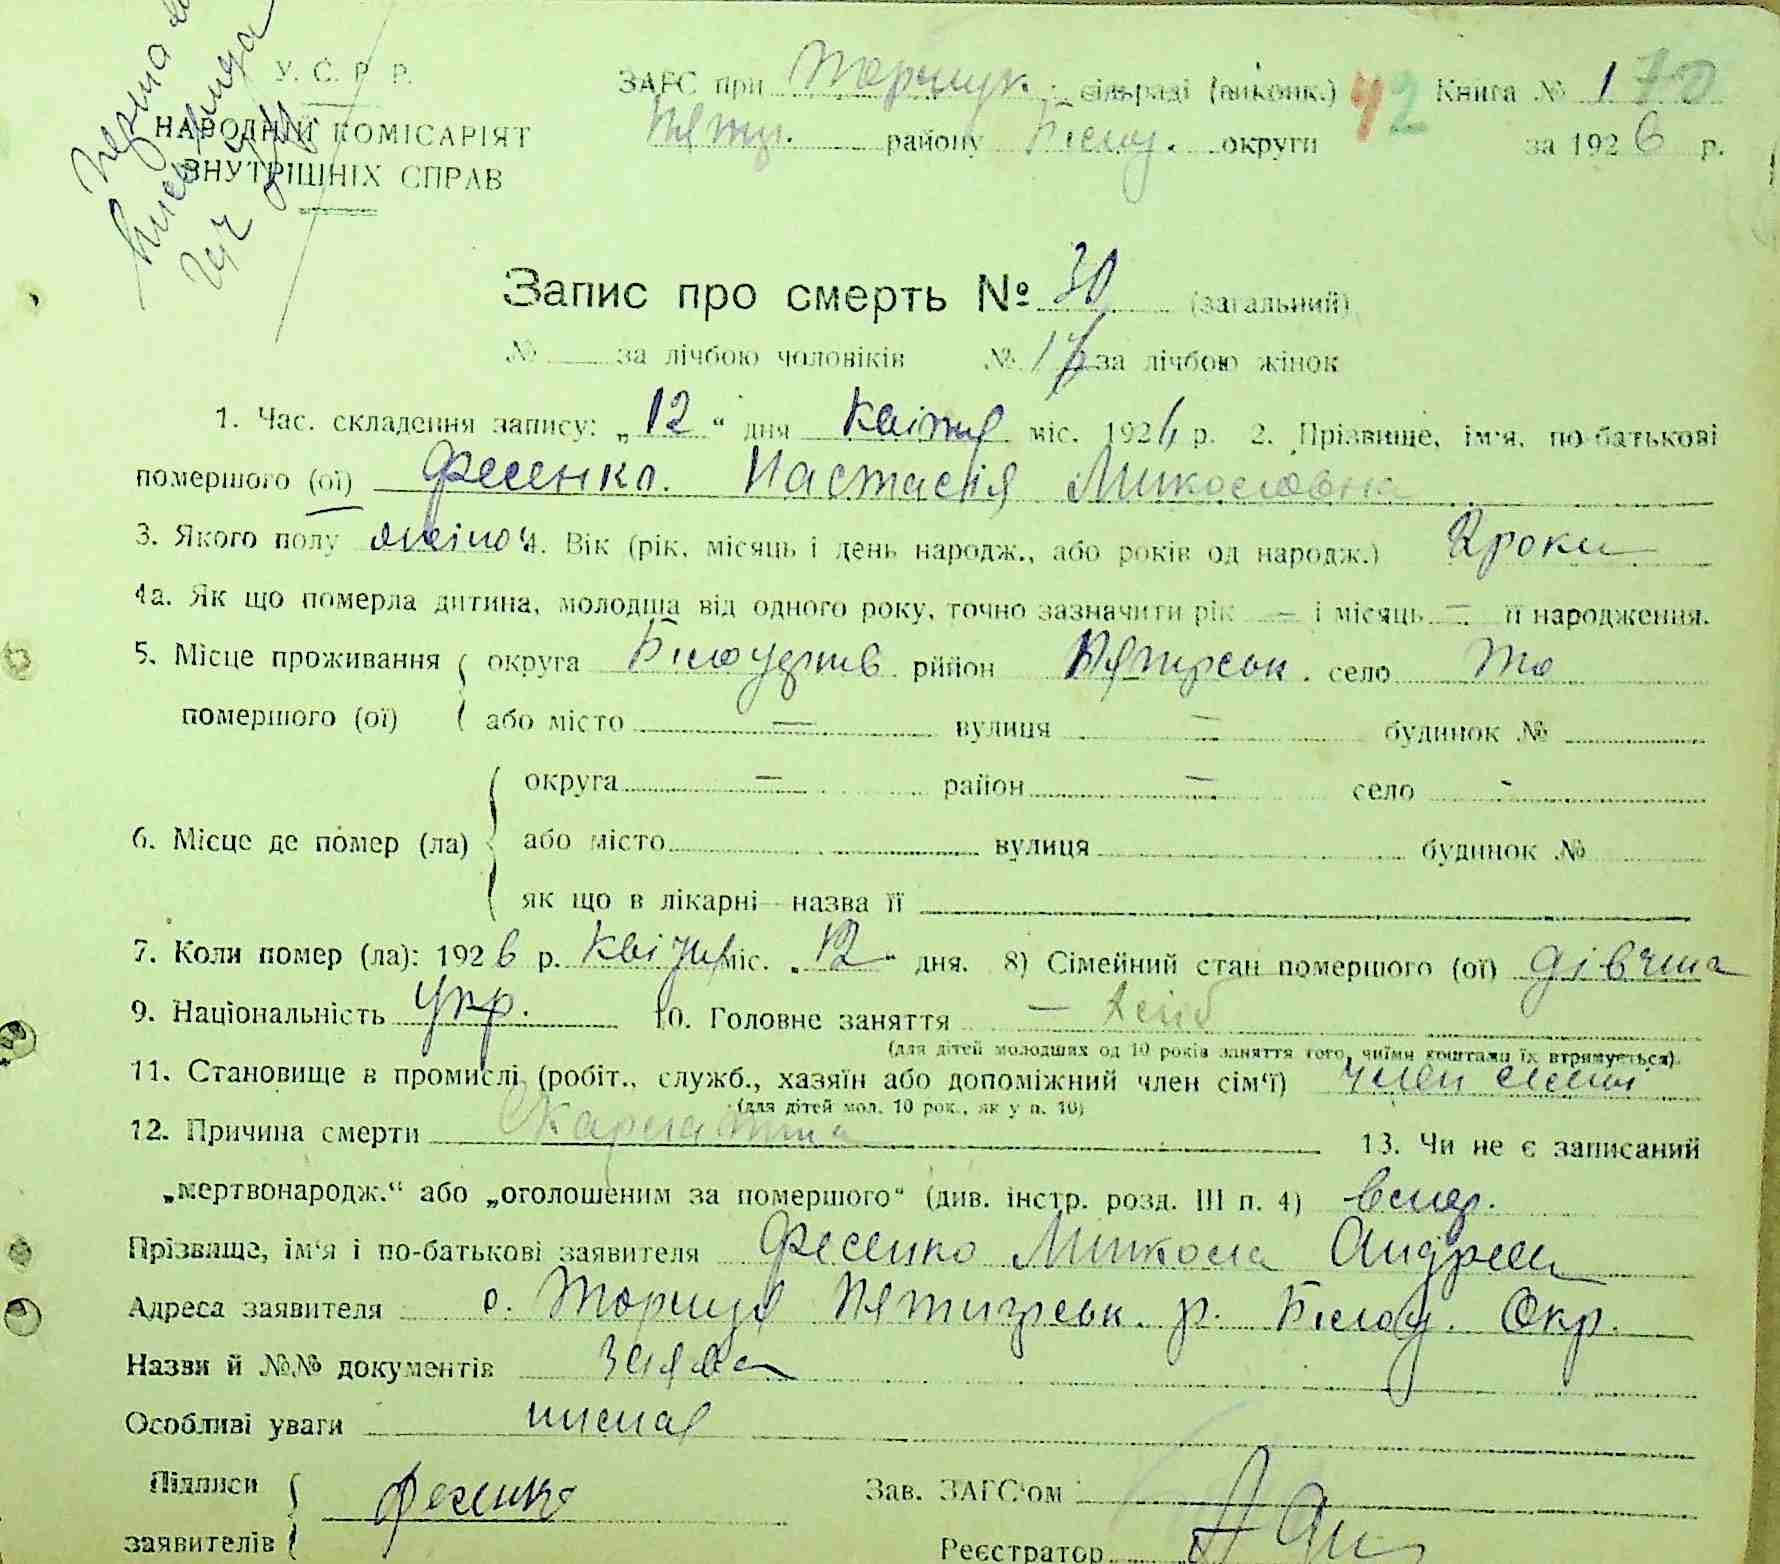 У. С. Р. Р.
НАРОДНІЙ КОМІСАРІЯТ
ВНУТРІШНІХ СПРАВ
ЗАГС при Торчиц. сільраді (виконк.) 42 Книга № 1 70
Пятиг. району Білоц. округи за 1926 р.
Запис про смерть № 30 (загальний)
№ за лічбою чоловіків № за лічбою жінок
1. Час. складення запису: „12“ дня квітня міс. 1926 р. 2. Прізвище, ім'я, по-батькові
помершого (ої) Фесенко Настасія Миколовна
3. Якого полу жіноч 4. Вік (рік, місяць і день народж., або років од народж.) 2 роки
4а. Як що померла дитина, молодша від одного року, точно зазначити рік — і місяць — її народження.
5. Місце проживання округа район село
помершого (ої) або місто — вулиця — будинок №
округа — район — село -
6. Місце де помер (ла) або місто вулиця будинок №
як що в лікарні—назва її
7. Коли помер (ла): 1926 р. квітня міс. „12“ дня. 8) Сімейний стан помершого (ої) дівчина
9. Національність укр. 10. Головне заняття — хліб
(для дітей молодших од 10 років заняття того, чиїми коштами їх втримується).
11. Становище в промислі (робіт., служб., хазяїн або допоміжний член сім'ї) член сем'ї
(для дітей мол. 10 рок., як у п. 10)
12. Причина смерти Скарлатина 13. Чи не є записаний
„мертвонародж.“ або „оголошеним за помершого“ (див. інстр. розд. III п. 4)
Прізвище, ім'я і по-батькові заявителя Фесенко Микола Андреев
Адреса заявителя с. Торчиця Пятигірськ. р. Білоц. Окр.
Назви й №№ документів заява
Особливі уваги немає
Підписи Фесенко Зав. ЗАГС'ом
заявителів Реєстратор